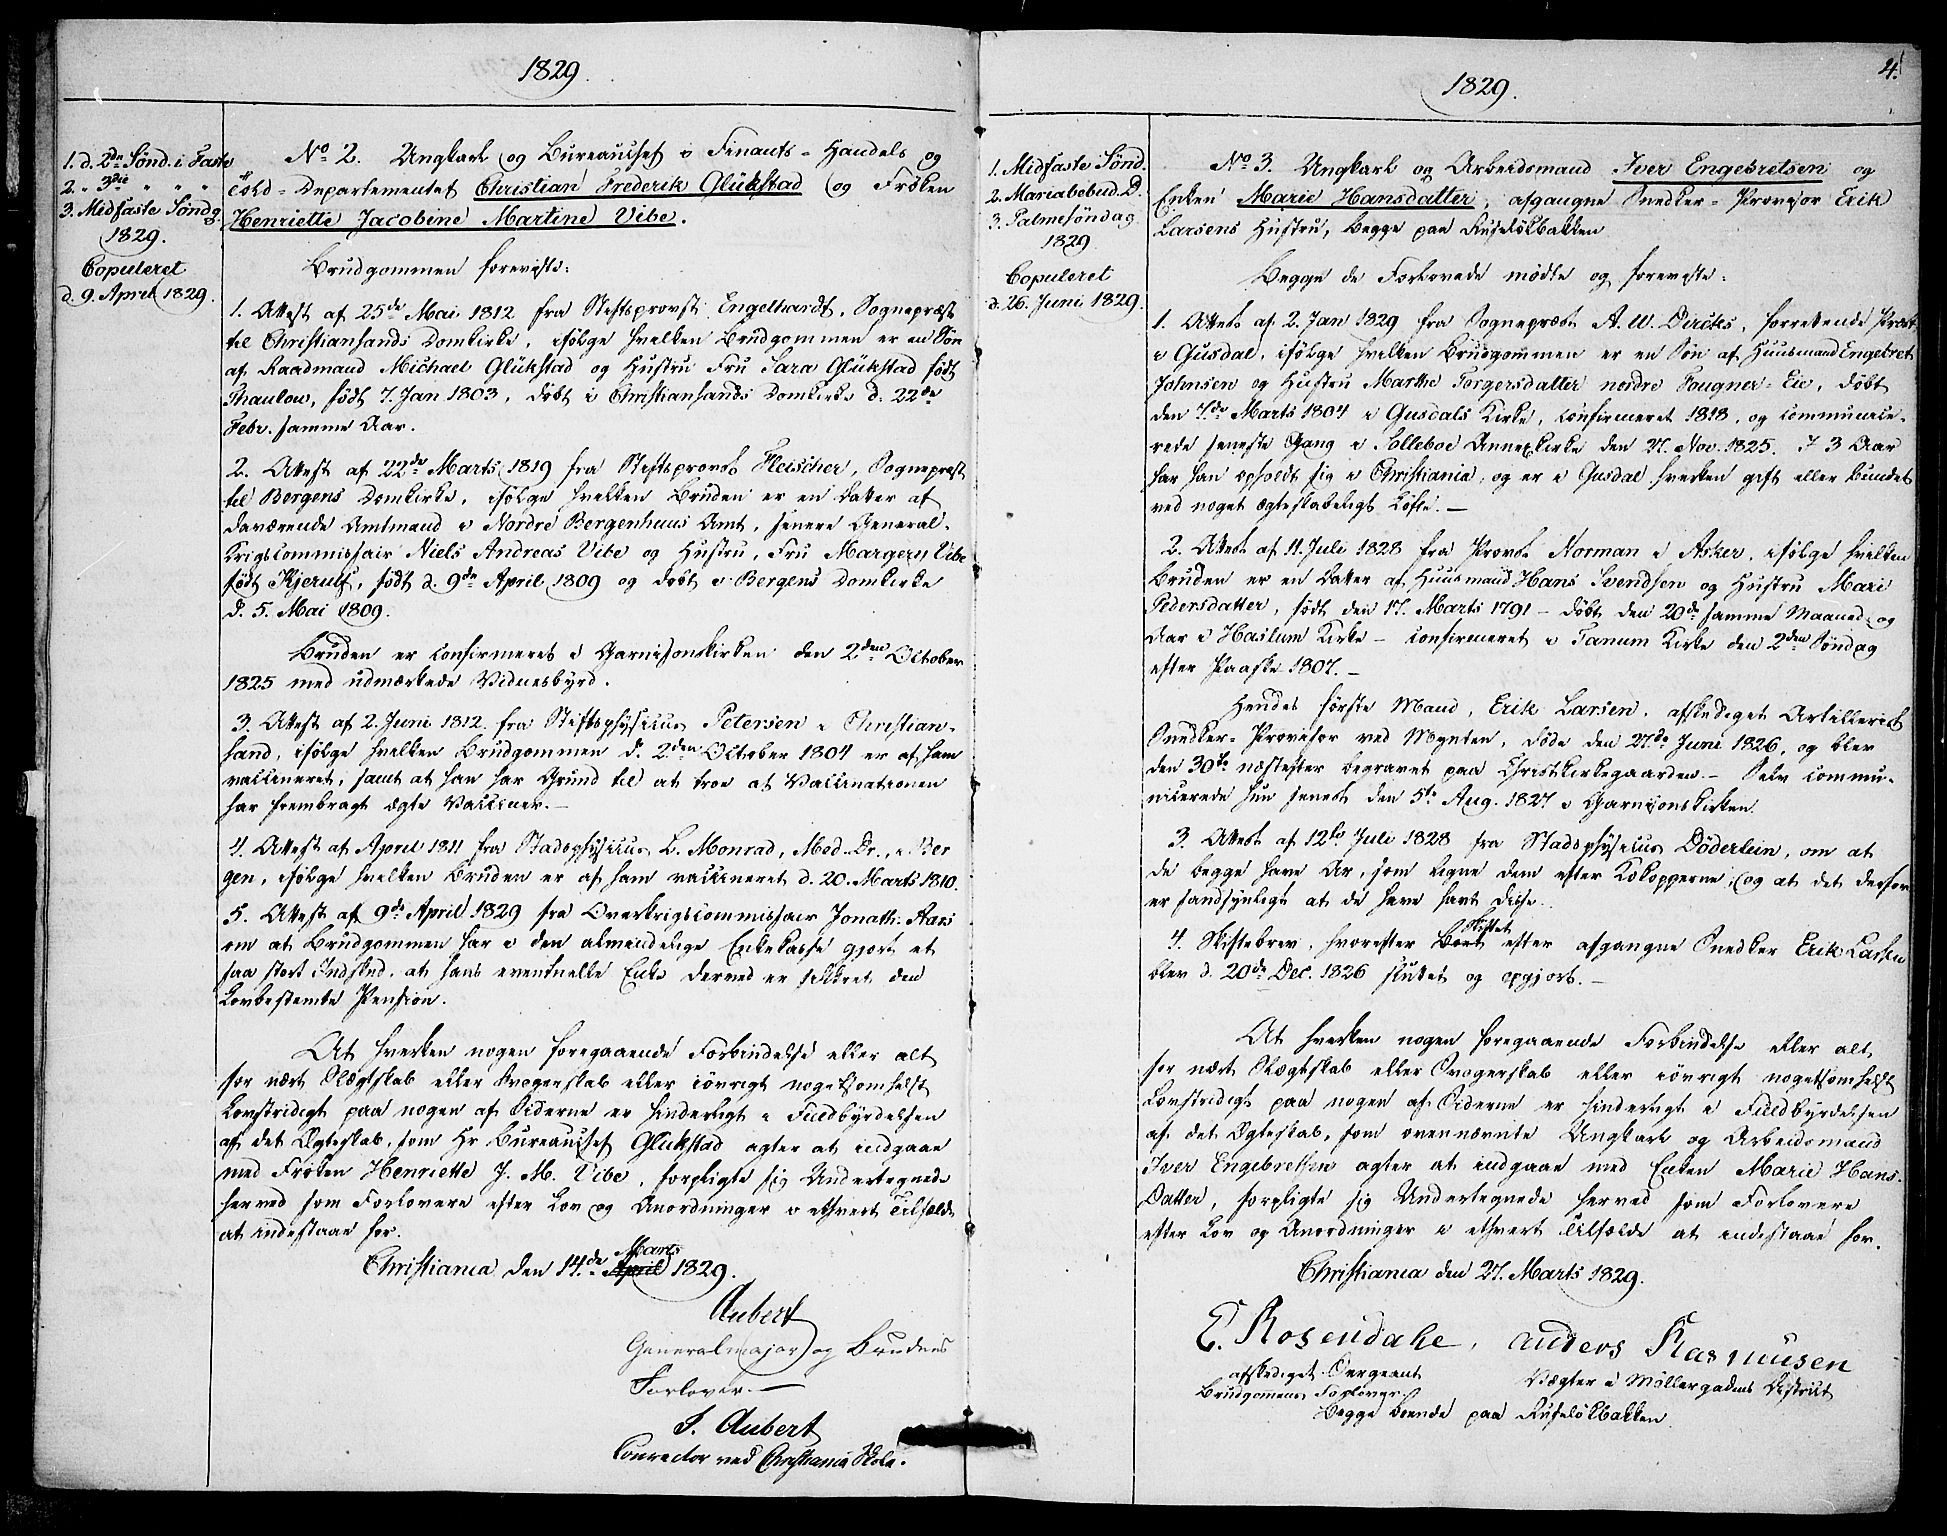 1829.
1. d. 2den Sønd. i Faste
2. " 3die " " "
3. Midfaste Søndg.
1829.
Copuleret
d. 9. April 1829.
No 2. Ungkarl og Bureauchef i Finants- Handels og
Told-Departementet Christian Frederik Glükstad og Frøken
Henriette Jacobine Martine Vibe.
Brudgommen foreviste:
1. Attest af 25de Mai 1812 fra Stiftsprovst Engelhardt, Sognepræst
til Christiansands Domkirke, ifølge hvilken Brudgommen er en Søn
af Raadmand Michael Glükstad og Hustru Fru Sara Glükstad født
Thaulow, født 7. Jan 1803, døbt i Christiansands Domkirke d. 22de
Febr. samme Aar.
2. Attest af 22de Marts 1819 fra Stiftsprovst Fleischer, Sognepræst
til Bergens Domkirke, ifølge hvilken Bruden er en Datter af
daværende Amtmand i Nordre Bergenhuus Amt, senere General-
Krigscommissair Niels Andreas Vibe og Hustru, Fru Margery Vibe
født Kjerulf, født d. 9de April 1809 og døbt i Bergens Domkirke
d. 5. Mai 1809.
Bruden er confirmeret i Garnisonskirken den 2den October
1825 med udmærkede Vidnesbyrd.
3. Attest af 2. Juni 1812 fra Stiftsphysicus Petersen i Christian-
sand, ifølge hvilken Brudgommen d. 2den October 1804 er af ham
vaccineret, samt at han har Grund til at troe at Vaccinationen
har frembragt ægte Vacciner.—
4. Attest af April 1811 fra Stadsphysicus L. Monrad, Med. Dr., i Ber
gen, ifølge hvilken Bruden er af ham vaccineret d. 20. Marts 1810.
5. Attest af 9de April 1829 fra Overkrigscommissair Jonath: Aars
om at Brudgommen har i den almindelige Enkekasse gjort et
saa stort Indskud, at hans eventuelle Enke derved er sikkret den
Lovbestemte Pension.
At hverken nogen foregaaende Forbindelse eller alt
for nært Slægtskab eller Svogerskab eller iøvrigt nogetsomhelst
Lovstridigt paa nogen af Siderne er hinderligt i Fuldbyrdelsen
af det Ægteskab, som Hr Bureauchef Glükstad agter at indgaae
med Frøken Henriette J. M. Vibe, forpligte sig Undertegnede
herved som Forlovere efter Lov og Anordninger i ethvert Tilfælde
at indestaae for.
Marts
Christiania den 14de April 1829.
Aubert
Generalmajor og Brudens
Forlover.—
S. Aubert
Conrector ved Christiania Skole.
4.
1829.
1. Midfaste Sønd.
2. Mariæbebud. D.
3. Palmesøndag
1829
Copuleret
d. 26. Juni 1829.
No 3. Ungkarl og Arbeidsmand Iver Engebretsen og
Enken Marie Hansdatter, afgangne Snedker-Provisor Erik
Larsens Hustru, begge paa Ruseløkbakken
Begge de Forlovede mødte og foreviste:
1. Attest af 2. Jan 1829 fra Sognepræst A. W. Dircks, forrettende Præst
i Gusdal, ifølge hvilken Brudgommen er en Søn af Huusmand Engebret
Johnsen og Hustru Marthe Torgersdatter nordre Fougner-Eie, døbt
den 7de Marts 1804 i Gusdals Kirke, confirmeret 1818, og communice-
rede seneste Gang i Solleboe Annexkirke den 27. Nov. 1825. I 3 Aar
har han opholdt sig i Christiania, og er i Gusdal hverken gift eller bundet
ved noget ægteskabeligt Løfte.—
2. Attest af 11. Juli 1828 fra Provst Norman i Asker, ifølge hvilken
Bruden er en Datter af Huusmand Hans Svendsen og Hustru Mari
Pedersdatter, født den 17. Marts 1791 – døbt den 20de samme Maaned og
Aar i Haslum Kirke – confirmeret i Tanum Kirke den 2den Søndag
efter Paaske 1807.—
Hendes første Mand, Erik Larsen, afskediget Artillerist
Snedker-Provisor ved Mynten, døde den 27de Juni 1826, og blev
den 30te næstefter begravet paa Christkirkegaarden.— Selv commu-
nicerede hun senest den 5te Aug. 1827 i Garnisonskirken.
3. Attest af 12te Juli 1828 fra Stadsphysicus Döderlein, om at
de begge have Ar, som ligne dem efter Kokopperne, og at det derfor
er sandsynligt at de have havt disse.
Skiftet
4. Skiftebrev, hvorefter Boet efter afgangne Snedker Erik Larsen
blev d. 20de Dec. 1826 sluttet og opgjort.—
At hverken nogen foregaaende Forbindelse eller alt
for nært Slægtskab eller Svogerskab eller iøvrigt nogetsomhelst
Lovstridigt paa nogen af Siderne er hinderligt i Fuldbyrdelsen
af det Ægteskab, som ovennævnte Ungkarl og Arbeidsmand
Iver Engebretsen agter at indgaae med Enken Marie Hans-
Datter, forpligte sig Undertegnede herved som Forlovere
efter Lov og Anordninger i ethvert Tilfælde at indestaae for.
Christiania den 27. Marts 1829.
E. Rosendahe, anders Rasmusen
afskediget Sergeant Vægter i Møllergadens District
Brudgomens Forlover.
Begge boende paa Ruseløkbakken